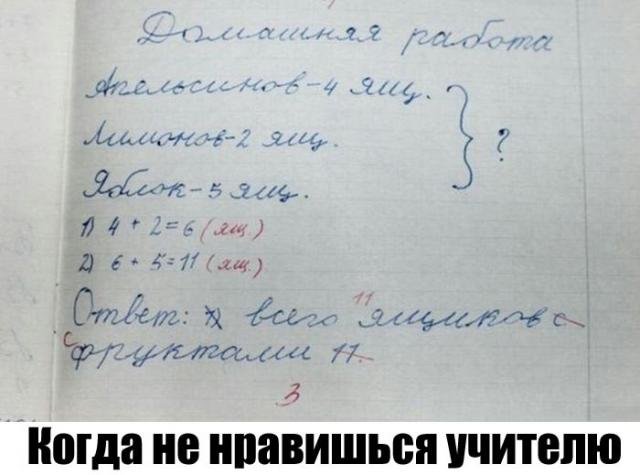 Домашняя работа
Апельсинов-4 ящ.
Лимонов-2 ящ.
}?
Яблок-5 ящ.
1) 4 + 2=6 (ящ.)
2) 6 + 5=11 (ящ.)
11
Ответ: всего ящиков с
с фруктами 11.
3
Когда не нравишься учителю